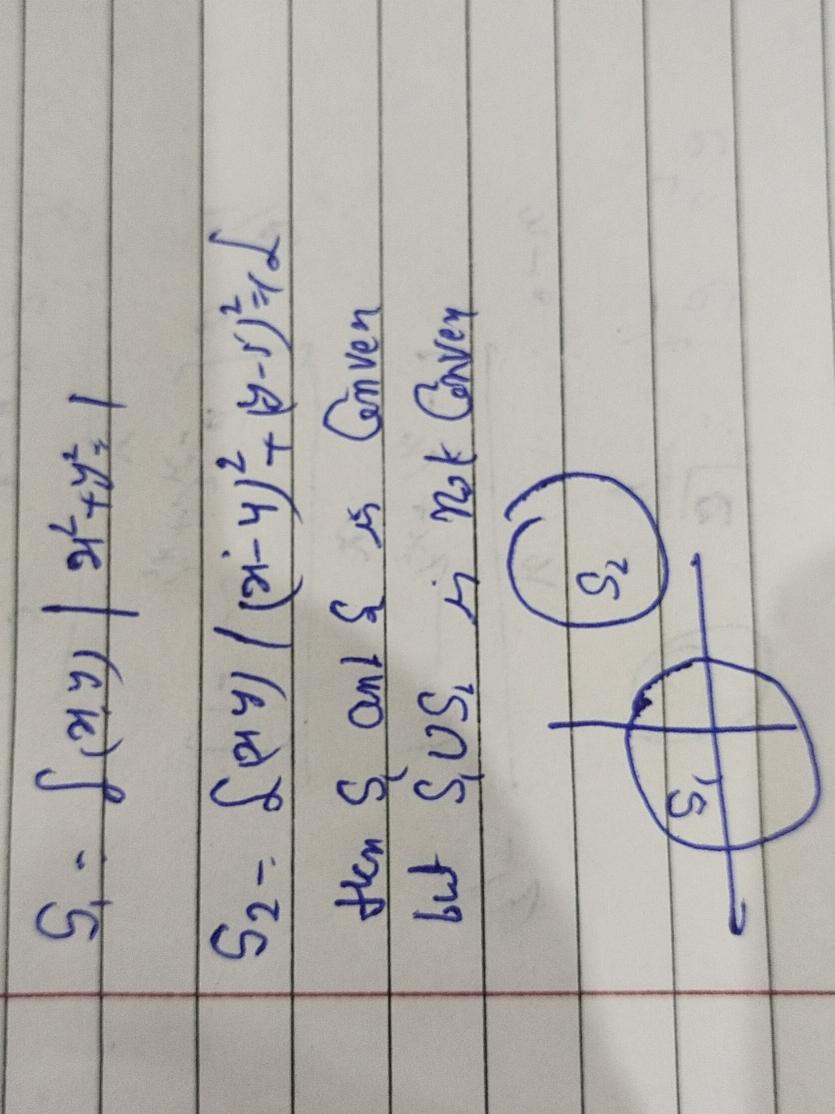 S₁ = {(x,y) | x²+y²=1
S₂ = {(x,y) | (x-4)²+(y-5)²=1}
then S₁ and S₂ is Convex
but S₁∪S₂ is not Convex
S₂
S₁